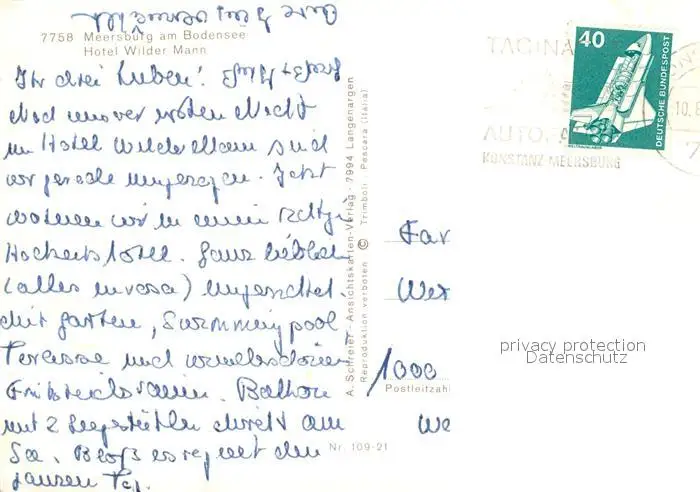 7758 Meersburg am Bodensee
Hotel Wilder Mann
Ihr drei Lieben!
Nach unserer ersten Nacht
im Hotel Wilder Mann sind
wir gerade umgezogen. Jetzt
wohnen wir in einem
Hochzeitshotel. Ganz lieblich
(alles in rosa) eingerichtet.
mit Garten, Swimmingpool
Terrasse und wunderschönem
Frühstücksraum. Balkon
mit 2 Liegestühlen direkt am
See. Bloß es regnet den
ganzen Tag.
A. Schreier - Ansichtskarten-Verlag - 7994 Langenargen
Reproduktion verboten © Trimboli - Pescara (Italia)
Nr. 109-21
40
DEUTSCHE BUNDESPOST
WELTRAUMLABOR
TAGINA
AUTOFÄ
KONSTANZ-MEERSBURG
10.8
7
Fam
Wer
1000
Postleitzahl
We
privacy protection
Datenschutz